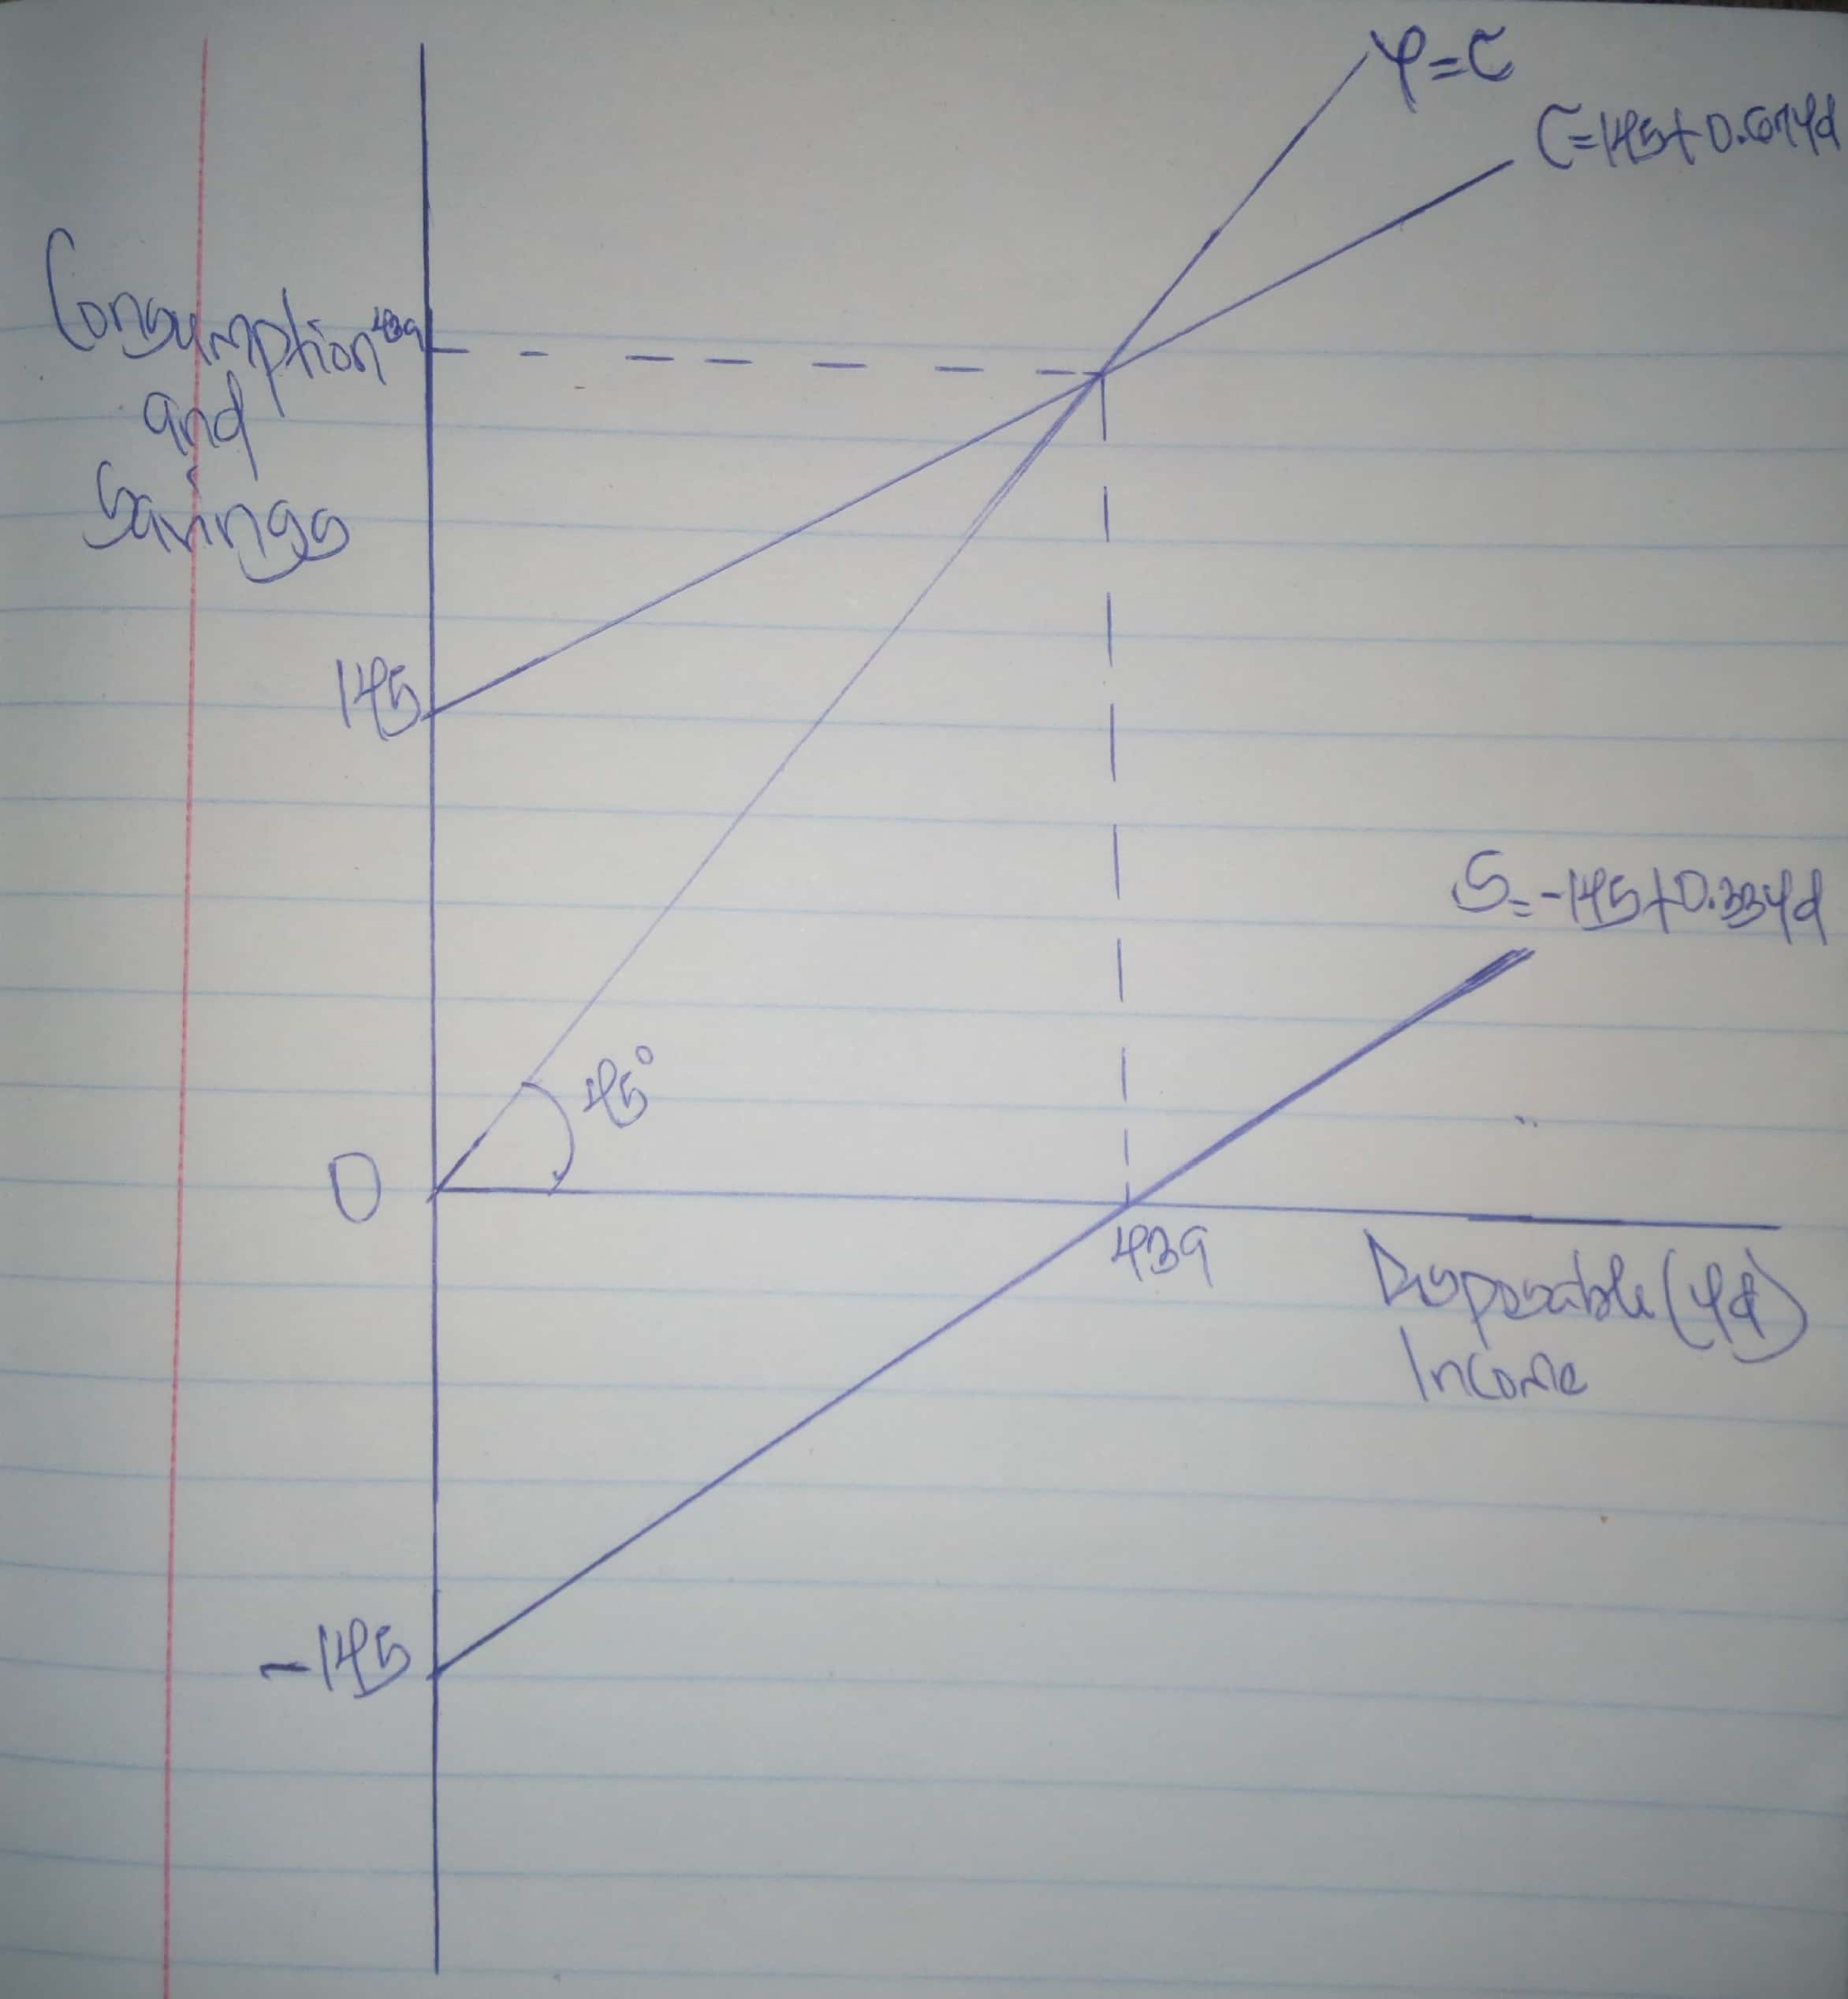 Y=C
C=145+0.67Yd
Consumption
and
Savings
439
145
S=-145+0.33Yd
45°
0
439
Disposable (Yd)
Income
-145